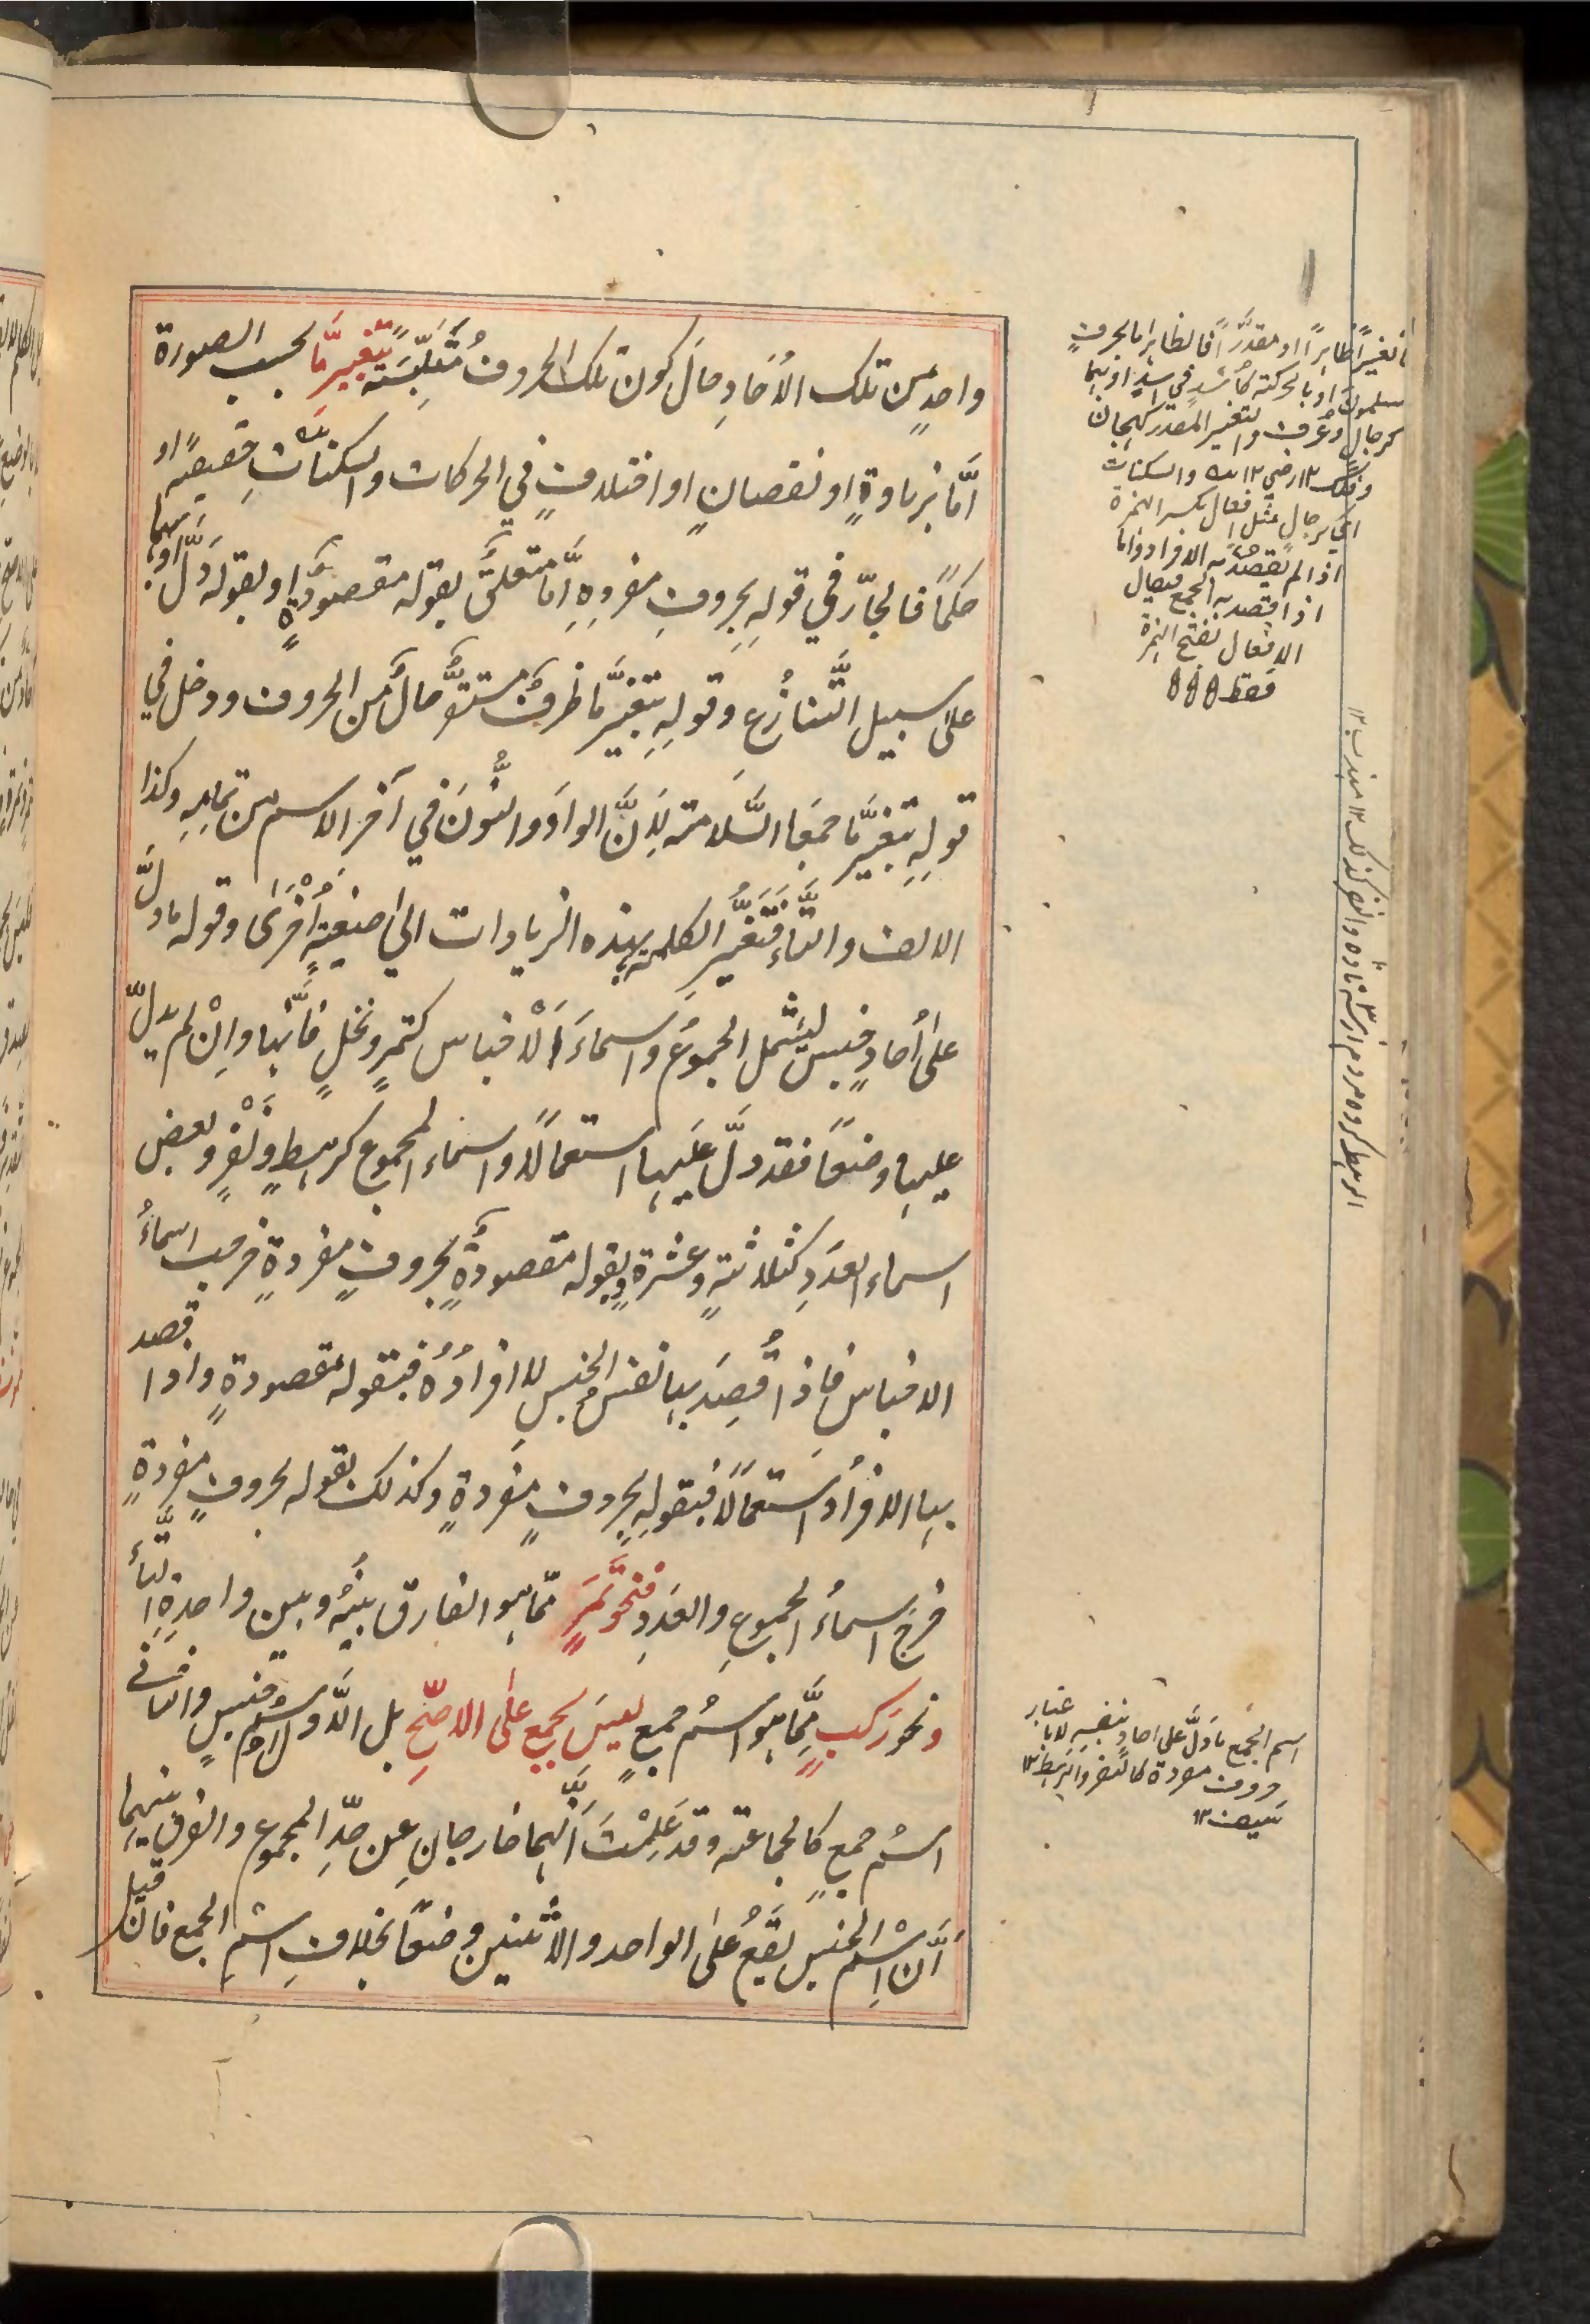 واحدٍ من تلك الأحَادِ حالَ كون تلك الحروف مُتَلَبِّسَةً بتغييرٍ مَّا بحسب الصورة
امَّا بزيادةٍ او نقصانٍ او اختلافٍ في الحركات والسكناتِ حقيقةً او
حكمًا فالجارّ في قولِه بحروفِ مفردِهِ امَّا متعلقٌ بقوله مقصودةٍ او بقوله دَلَّ او بهما
على سبيل التَّنازُع وقولِهِ بتغيّرٍ مَّا ظرفٌ مستقرٌّ حالٌ من الحروف ودخل في
قولِهِ بتغيّرٍ مَّا جمعَا السَّلامة لِانَّ الواوَ والنُّونَ في آخر الاسم من تمامِهِ وكذا
الالف والتَّاءُ فتَغَيَّرُ الكلمة بهذه الزيادات الى صيغةٍ اُخْرَىٰ وقوله ما دلَّ
علىٰ اُحادٍ جنس ليشمل الجموعُ واسماءَ اَلْاجناس كتمرٍ ونخلٍ فانَّها واِنْ لم يدلّ
عليها وضعًا فقد دلَّ عليها استعمالًا واسماء الجموع كرهطٍ ونَفْرٍ وبعض
اسماء العدَدِ كثلاثةٍ وعشرةٍ وبقوله مقصودةٌ بحروفٍ مفردةٍ خرجت اسماءُ
الاجناس فاذا قُصِدَ بها نفسُ الجنسِ لا افرادُهُ فبقوله مقصودةٍ واذا قصد
بها الافرادُ استعمالًا فبقولِهِ بحروفٍ مفردةٍ وكذلك بقوله بحروفٍ مفردةٍ
خرجَ اسماءُ الجموعِ والعدَدِ فنحوُ تَمْرٍ ممّا هو الفارق بينُهُ وبين واحدِهِ التَّاءُ
ونحو رَكبٍ مِمَّا هو اسمُ جمعٍ ليسَ بجمعٍ علىٰ الاصحِّ بل الاَّولُ اسمُ جنسٍ والثاني
اسمُ جمعٍ كالجماعة وقد عَلِمْتَ اَنَّهما خارجانِ عن حدِّ المجموع والفرق بينهما
اَنَّ اسْمَ الجنس يقعُ علىٰ الواحد والاثنين وضعًا بخلافِ اسْمِ الجمع فان قيل
تغييرًا ظاهرًا او مقدَّرًا فالظاهر اما بالحروفِ
كمسلمون او بالحركة كاُسْدٍ في اسدٍ او بهما
كرجالٍ وغُرف والتغيير المقدر كهجان
وفلك ١٢ رضي ١٢ والسكنات
اي رجال مثل افعال بكسر الهمزة
اذا لم يقصد به الافراد واما
اذا قصد به الجمع فيقال
الافعال بفتح الهمزة
فقط
اسم الجمع ما دَلَّ على احادٍ بنفسه لا باعتبار
حروف مفردة كالنفر والرهط ١٢